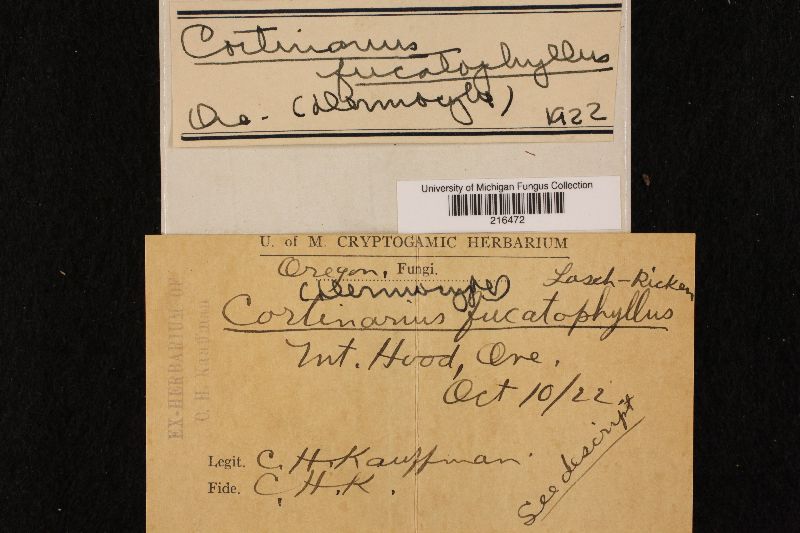 Cortinarius
fucatophyllus
Ore. (Dermocybe) 1922
University of Michigan Fungus Collection
216472
U. of M. CRYPTOGAMIC HERBARIUM
Oregon, Fungi.
(Dermocybe) Lasch-Ricken
Cortinarius fucatophyllus
Mt. Hood, Ore.
Oct 10/22
EX-HERBARIUM OF
C. H. Kauffman
See descript
Legit. C. H. Kauffman.
Fide. C. H. K.